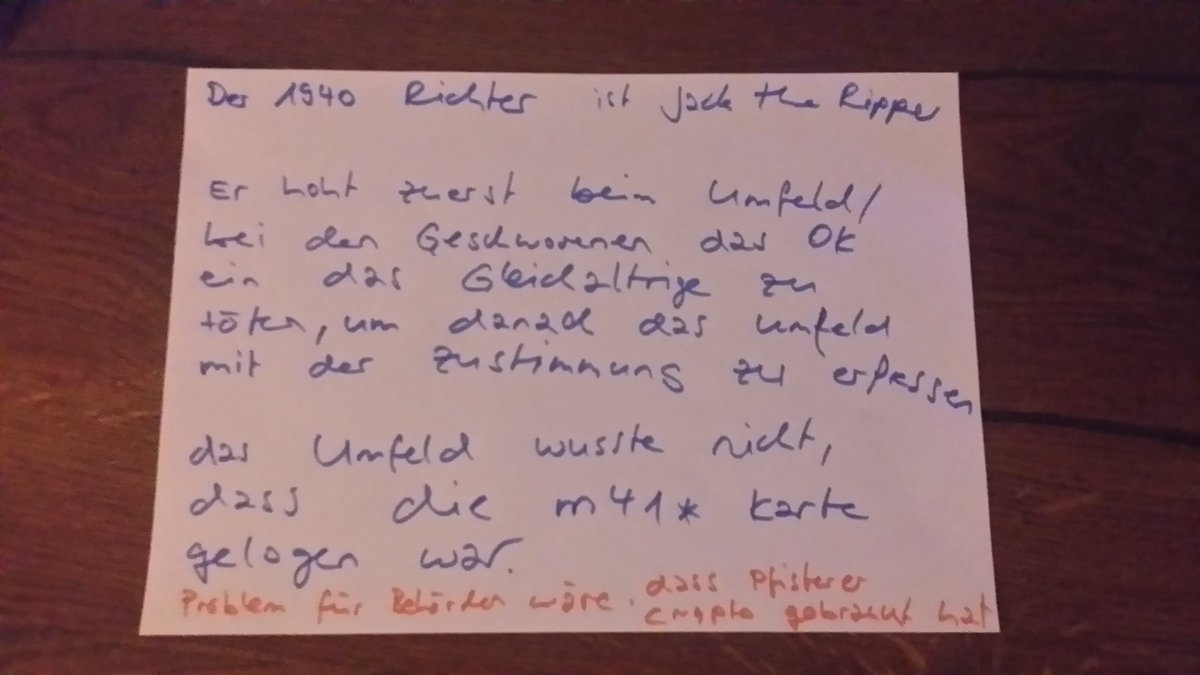 Der 1940 Richter ist Jack the Ripper
Er hohlt zuerst beim Umfeld/
bei den Geschworenen das OK
ein das Gleichaltrige zu
töten, um danach das Umfeld
mit der Zustimmung zu erpressen
das Umfeld wusste nicht,
dass die m41* Karte
gelogen war.
Problem für Behörden wäre, dass Pfisterer
crypto gebraucht hat